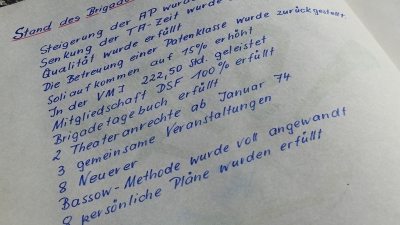 Stand des Brigade
Steigerung der AP wurde
Senkung der TA-Zeit wurde
Qualität wurde erfüllt
Die Betreuung einer Patenklasse wurde zurückgestellt
Soliaufkommen auf 15% erhöht
In der VMI 222,50 Std. geleistet
Mitgliedschaft DSF 100% erfüllt
Brigadetagebuch erfüllt
2 Theateranrechte ab Januar 74
3 gemeinsame Veranstaltungen
8 Neuerer
Bassow-Methode wurde voll angewandt
8 persönliche Pläne wurden erfüllt